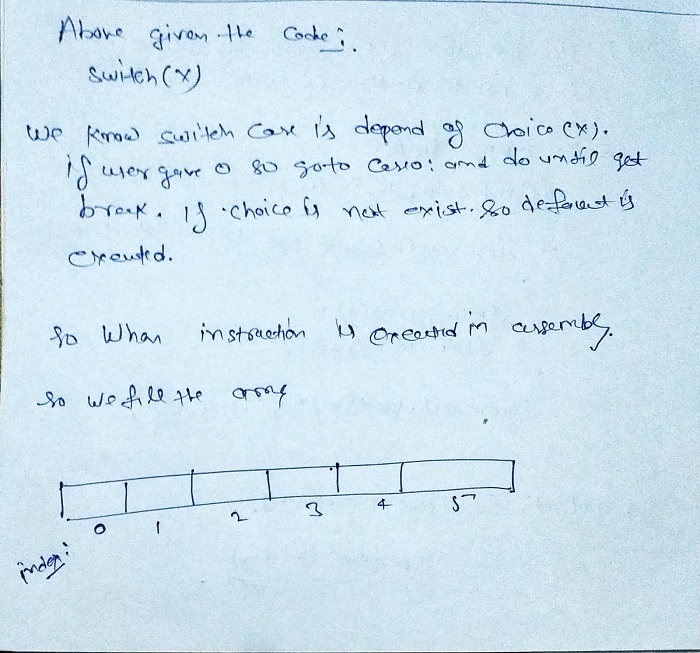 Above given the Code :.
switch(x)
We know switch case is depend of choice (x).
if user gave 0 so goto case0: and do until get
break. If choice is not exist. So default is
executed.
So When instruction is executed in assembly.
So we fill the array
0 1 2 3 4 5
index: